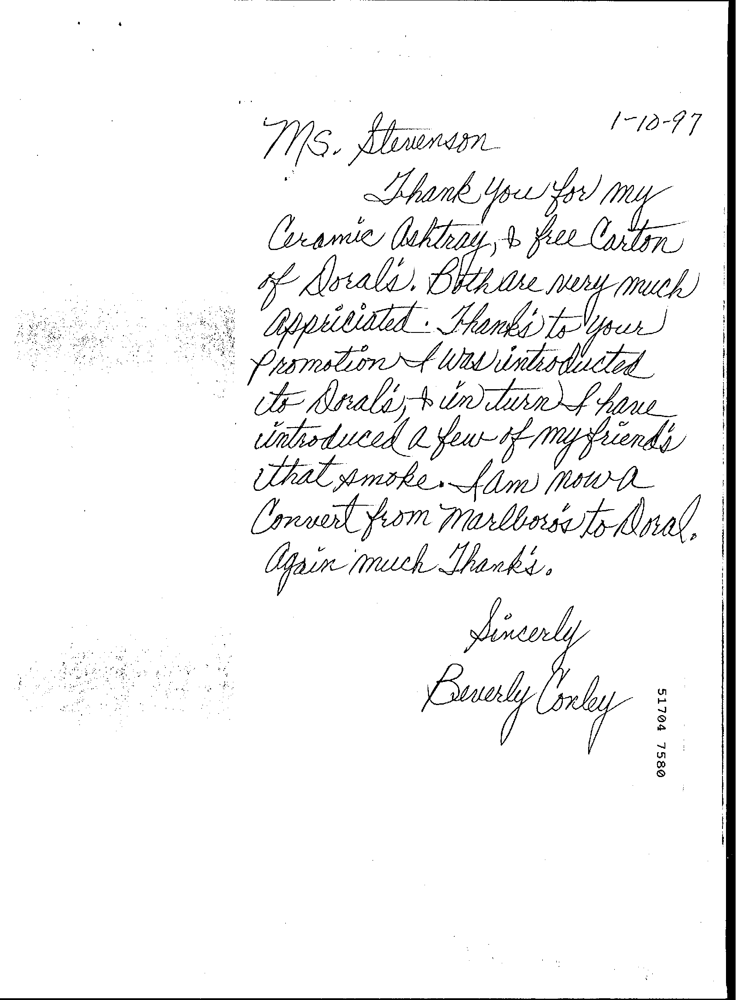 1-10-97
Ms. Stevenson
Thank you for my
Ceramic Ashtray, & free Carton
of Doral's. Both are very much
appriciated. Thank's to your
Promotion I was introducted
to Doral's, & in turn I have
introduced a few of my friend's
that smoke. I am now a
Convert from Marlboro's to Doral.
Again much Thank's.
Sincerly
Beverly Conley
51704 7580